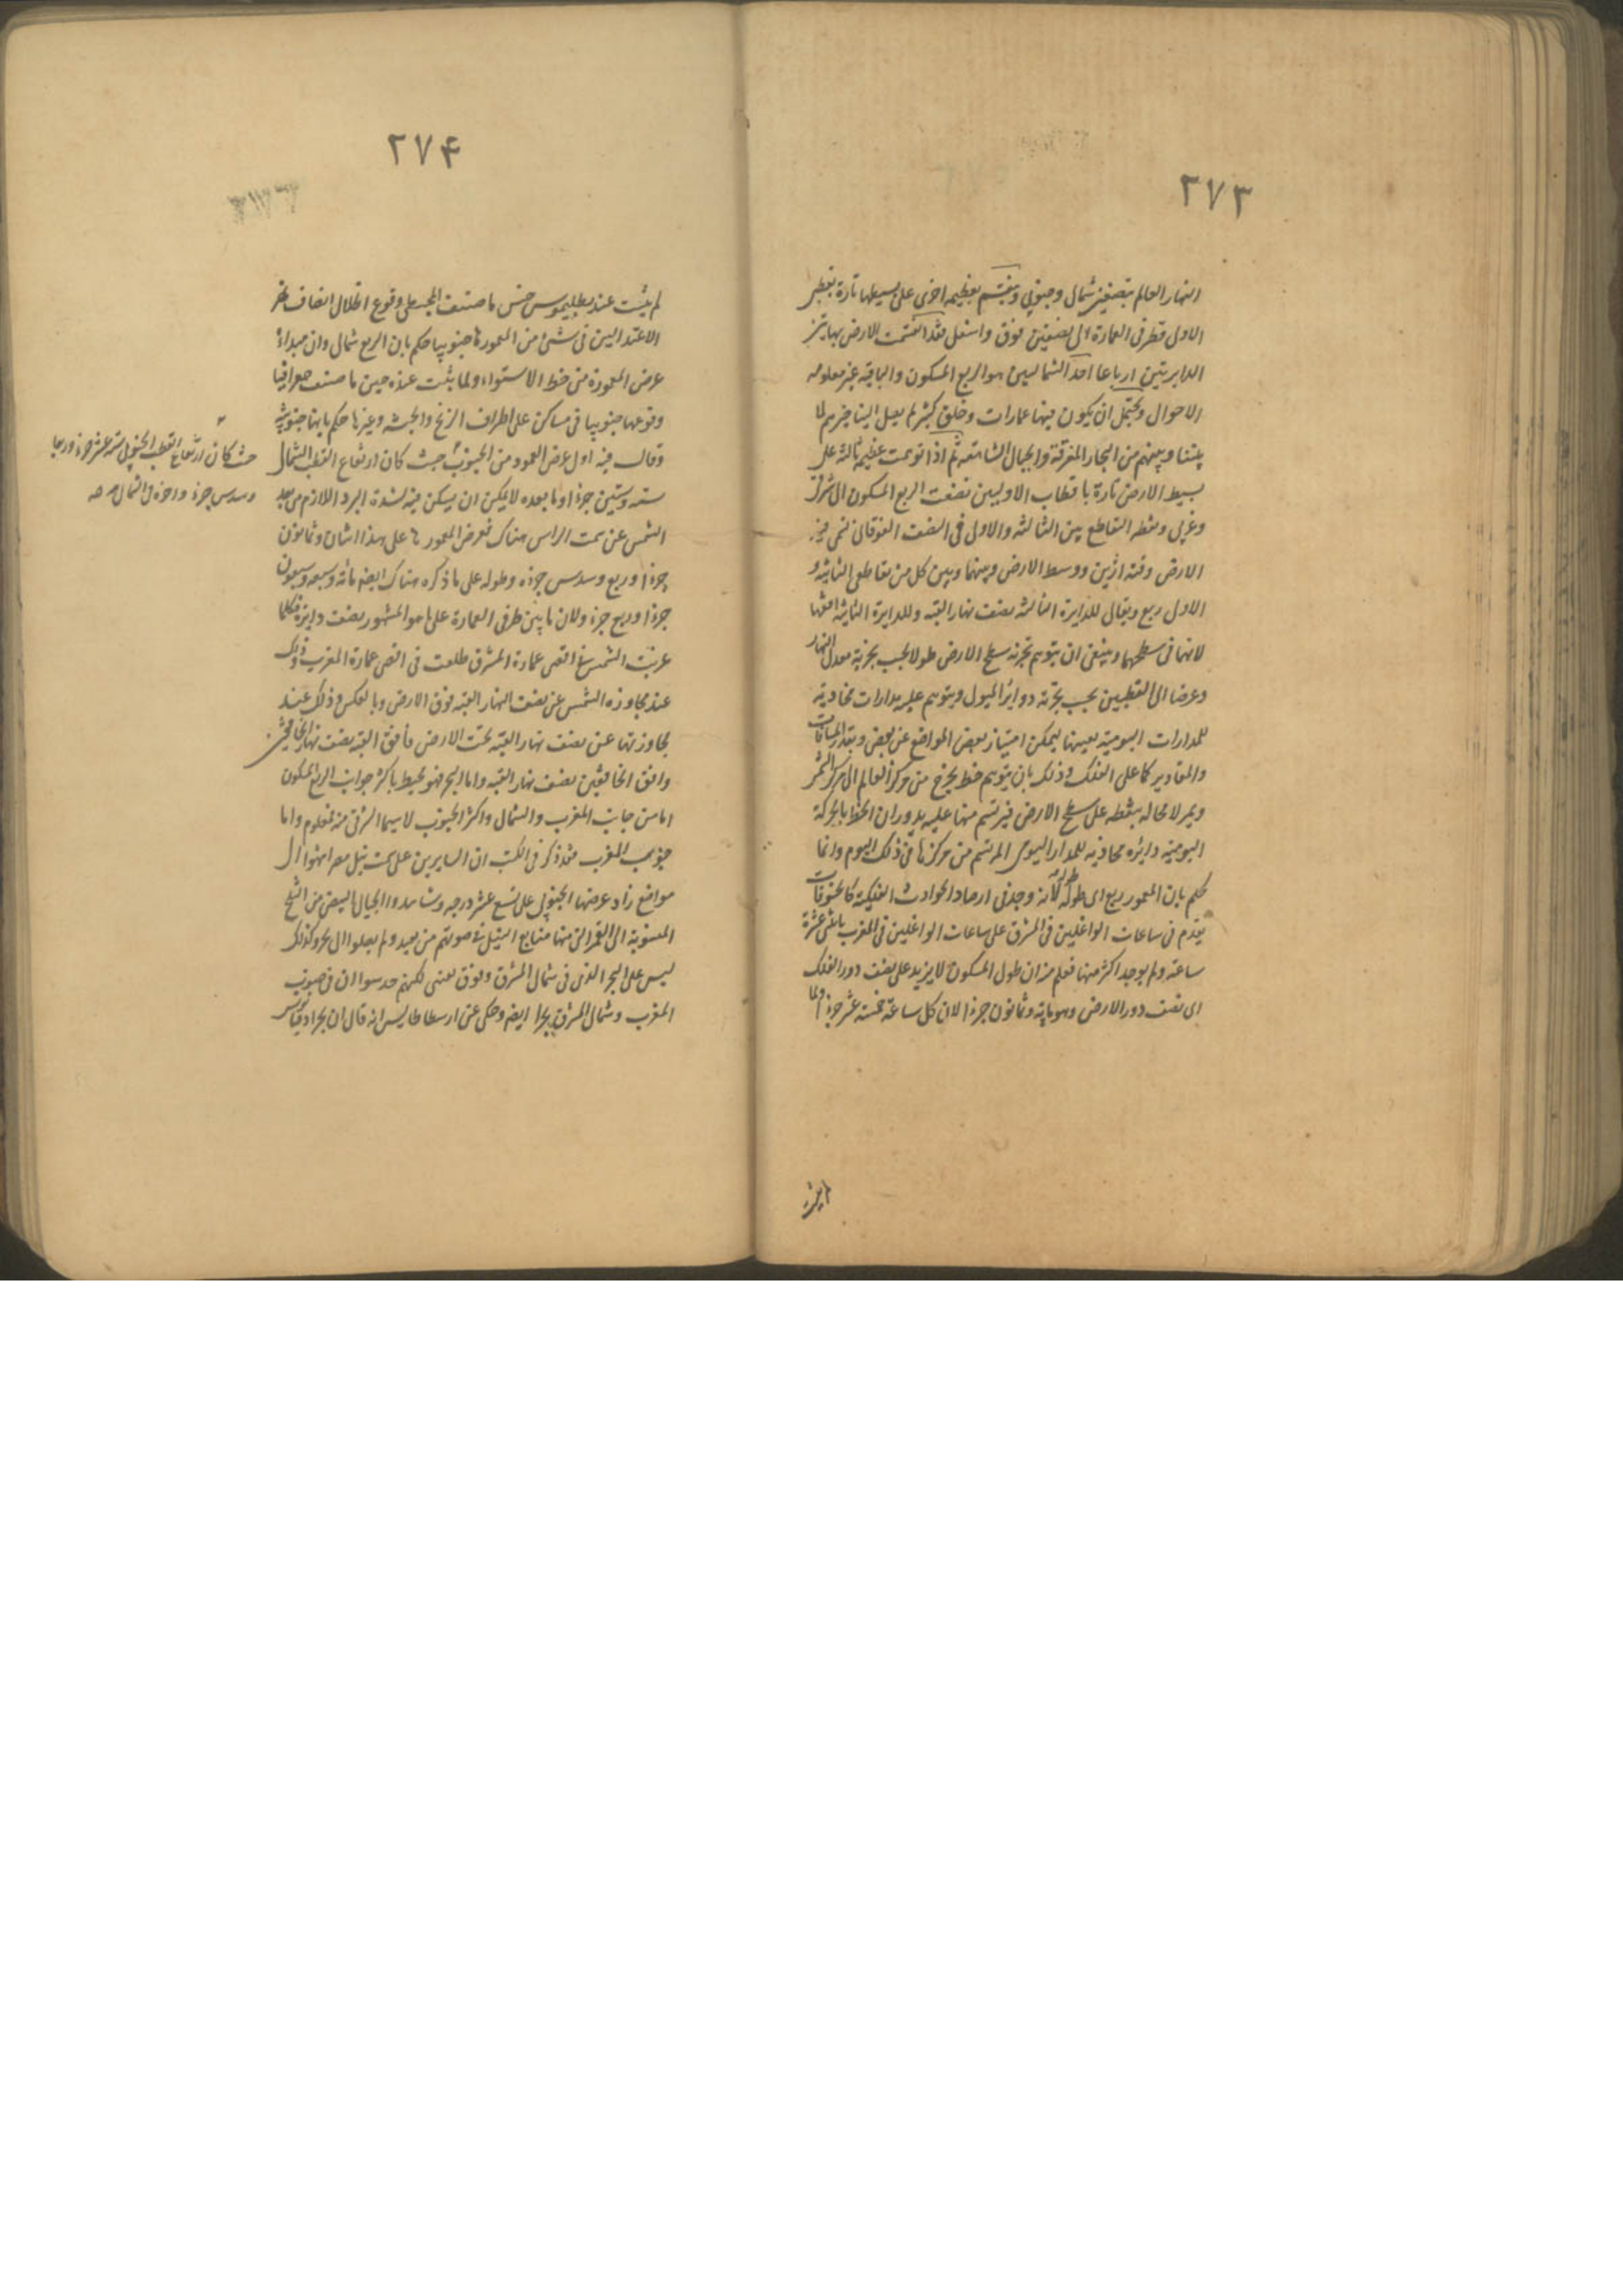 ٢٧٣
النهار العالم بنصفين شمالي وجنوبي وينقسم بعظيمة اخرى على بسيطها تارة بقطبي
الاولى قطرفي العمارة الى نصفين فوق واسفل فقد انقسمت الارض بهاتين
الدايرتين ارباعا احد الشماليين هو الربع المسكون والباقية غير معلومة
الاحوال ويحتمل ان يكون فيها عمارات وخلق كثير لم يصل الينا خبرهم لما
بيننا وبينهم من البحار المغرقة والجبال الشاهقة ثم اذا توهمت عظيمة ثالثة على
بسيط الارض تارة باقطاب الاوليين نصفت الربع المسكون الى شرقي
وغربي ونقطة التقاطع بين الثالثة والاولى في النصف الفوقاني تسمى قبة
الارض وقبة ارين ووسط الارض وبينها وبين كل من تقاطعي الثانية و
الاولى ربع ويقال للدايرة الثالثة نصف نهار القبة وللدايرة الثانية افقها
لانهما في سطحهما وينبغي ان يتوهم تجزئة سطح الارض طولا بحسب تجزية معدل النهار
وعرضا الى القطبين بحسب تجزئة دواير الميول ويتوهم عليه مدارات محاذية
للمدارات اليومية بعينها ليمكن امتياز بعض المواضع عن بعض وبقدر المسافات
والمقادير كما على الفلك وذلك بان يتوهم خط يخرج من مركز العالم الى مركز الشمس
ويمر لا محالة بنقطة على سطح الارض فيرتسم منها عليه بدوران الخط بالحركة
اليومية دايرة محاذية للمدار اليومي المرتسم من مركزها في ذلك اليوم وانما
حكم بان المعمور ربع اي طوله لانه وجد في ارصاد الحوادث الفلكية كالخسوفات
تقدم في ساعات الواغلين في المشرق على ساعات الواغلين في المغرب باثنى عشرة
ساعة ولم يوجد اكثر منها فعلم من ان طول المسكون لا يزيد على نصف دور الفلك
اى نصف دور الارض وهو مائة وثمانون جزءا لان كل ساعة خمسة عشر جزءا ولما
٢٧۴
لم يثبت عند بطلميوس حين ما صنف المجسطي وقوع اظلال انصاف نهر
الاعتدالين في شيء من المعمورة جنوبيا حكم بان الربع شمالي وان مبداء
عرض المعمورة من خط الاستواء ولما ثبت عنده حين ما صنف جغرافيا
وقوعها جنوبيا في مساكن على اطراف الزنج والحبشة وغيرها حكم بانها جنوبية
وقال فيه اول عرض المعمور من الجنوب حيث كان ارتفاع القطب الشمالي
ستة وستين جزءا وما بعده لا يمكن ان يسكن فيه لشدة البرد اللازم من بعد
الشمس عن سمت الراس هناك فعرض المعمورة على هذا اثنان وثمانون
جزءا وربع وسدس جزء وطوله على ما ذكره هناك ايضا مائة وسبعة وسبعون
جزءا وربع جزء ولان ما بين طرفي العمارة على ما هو المشهور نصف دايرة فكلما
غربت الشمس في اقصى عمارة المشرق طلعت في اقصى عمارة المغرب وذلك
عند مجاوزة الشمس عن نصف النهار القبة فوق الارض وبالعكس وذلك عند
مجاوزتها عن نصف نهار القبة تحت الارض فافق القبة نصف نهار الخافقين
وافق الخافقين نصف نهار القبة واما البحر فهو محيط باكثر جوانب الربع المسكون
اما من جانب المغرب والشمال واكثر الجنوب لا سيما الشرقي منه فمعلوم واما
جنوب المغرب فقد ذكر في الكتب ان السايرين على سمت نيل مصر انتهوا الى
مواضع زاد عرضها الجنوبي على تسع عشر درجة وشاهدوا الجبال البيض من الثلج
المنسوبة الى القمر التي منها منابع النيل في صوتهم من بعيد ولم يصلوا الى بحر وكذلك
ليس على البحر الذي في شمال المشرق وقوف يعني لكنهم حدسوا ان في جنوب
المغرب وشمال المشرق بحرا ايضا وحكى عن ارسطاطاليس انه قال ان بحر اوقيانوس
حيث كان ارتفاع القطب الجنوبي ستة عشر جزءا وربعا
وسدس جزء واخره في الشمال صح